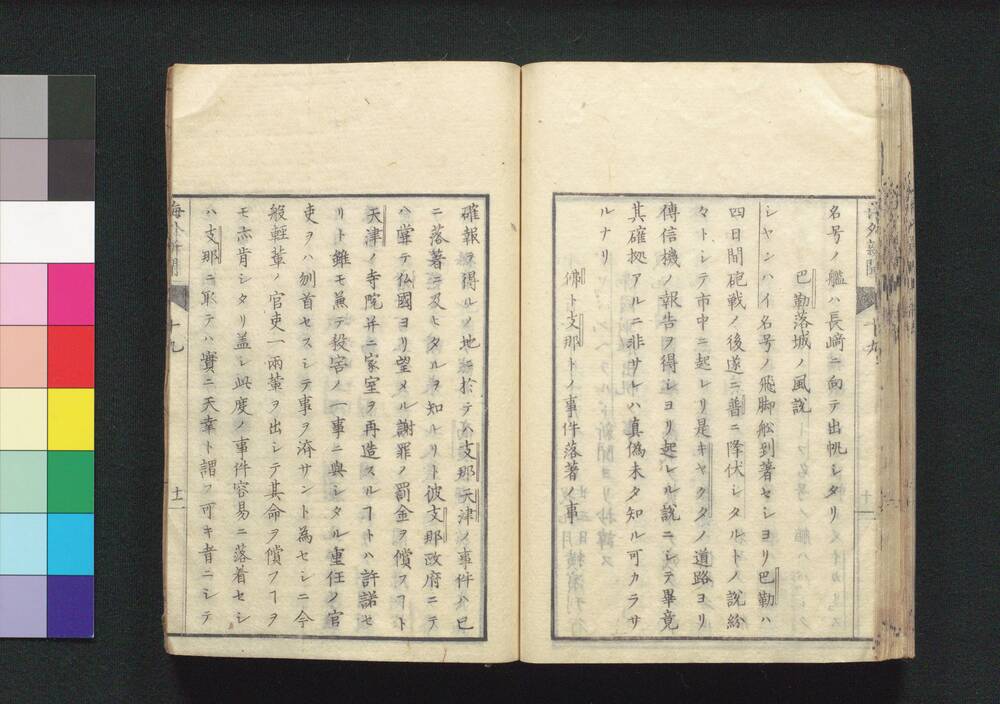 海外新聞
十九
十一
名号ノ艦ハ長﨑ニ向テ出帆シタリ
巴勒落城ノ風説
シヤンハイ名号ノ飛脚舩到著セシヨリ巴勒ハ
四日間砲戦ノ後遂ニ普ニ降伏シタルトノ説紛
々トシテ市中ニ起レリ是キヤクタノ道路ヨリ
傳信機ノ報告ヲ得シヨリ起レル説ニシテ畢竟
其確拠アルニ非サレハ真偽未タ知ル可カラサ
ルナリ
佛ト支那トノ事件落著ノ事
確報ヲ得ルノ地ニ於テハ支那天津ノ事件ハ已
ニ落著ニ及ヒタルヲ知ルリト彼支那政府ニテ
ハ甞テ仏國ヨリ望メル謝罪ノ罰金ヲ償フヿト
天津ノ寺院并ニ家室ヲ再造スルヿトハ許諾セ
リト雖モ兼テ殺害ノ一事ニ與シタル重任ノ官
吏ヲハ刎首セスシテ事ヲ濟サント為セシニ今
般輕輩ノ官吏一兩輩ヲ出シテ其命ヲ償フヿヲ
モ亦肯シタリ盖シ此度ノ事件容易ニ落着セシ
ハ支那ニ取テハ實ニ天幸ト謂フ可キ者ニシテ
海外新聞
十九
十一